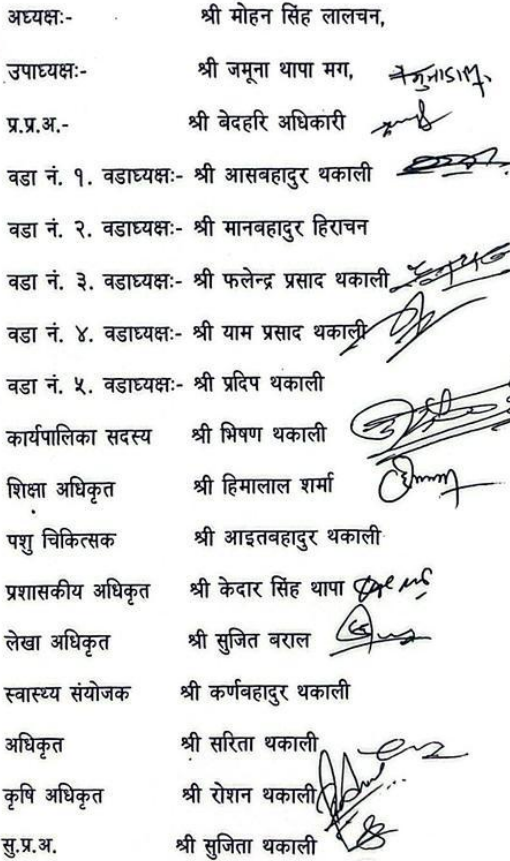 अध्यक्षः- श्री मोहन सिंह लालचन,
उपाध्यक्षः- श्री जमूना थापा मग,
प्र.प्र.अ.- श्री बेदहरि अधिकारी
वडा नं. १. वडाध्यक्षः- श्री आसबहादुर थकाली
वडा नं. २. वडाध्यक्षः- श्री मानबहादुर हिराचन
वडा नं. ३. वडाध्यक्षः- श्री फलेन्द्र प्रसाद थकाली
वडा नं. ४. वडाध्यक्षः- श्री याम प्रसाद थकाली
वडा नं. ५. वडाध्यक्षः- श्री प्रदिप थकाली
कार्यपालिका सदस्य श्री भिषण थकाली
शिक्षा अधिकृत श्री हिमालाल शर्मा
पशु चिकित्सक श्री आइतबहादुर थकाली
प्रशासकीय अधिकृत श्री केदार सिंह थापा
लेखा अधिकृत श्री सुजित बराल
स्वास्थ्य संयोजक श्री कर्णबहादुर थकाली
अधिकृत श्री सरिता थकाली
कृषि अधिकृत श्री रोशन थकाली
सु.प्र.अ. श्री सुजिता थकाली